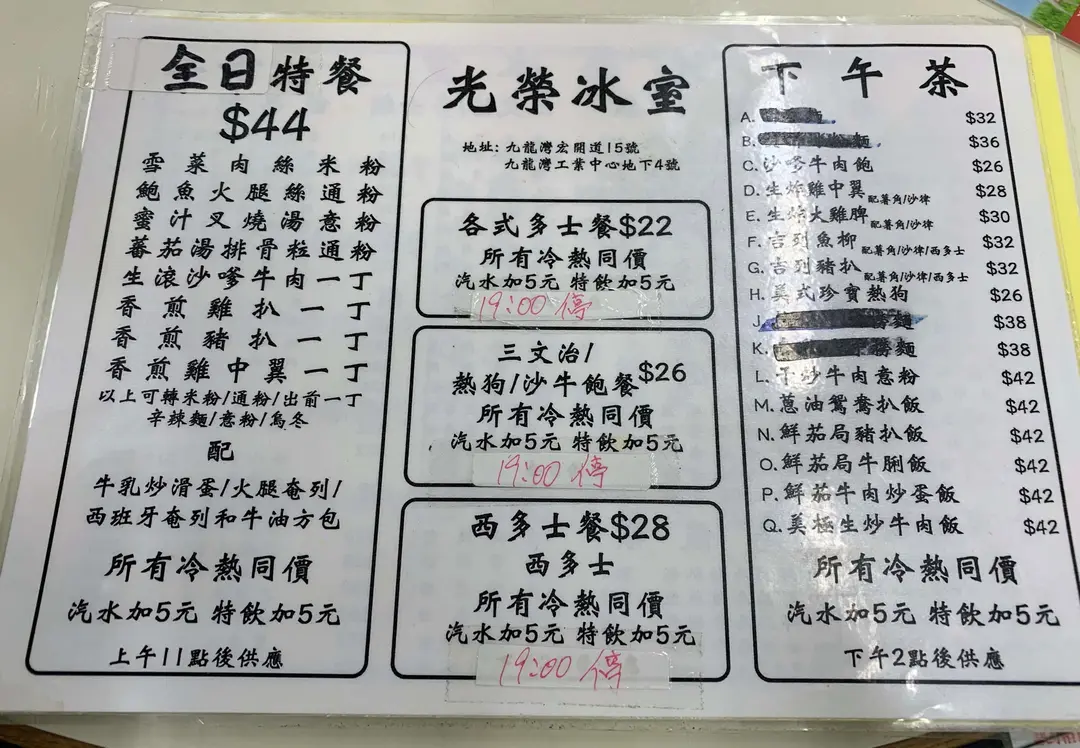 全日特餐
$44
雪菜肉絲米粉
鮑魚火腿絲通粉
蜜汁叉燒湯意粉
蕃茄湯排骨粒通粉
生滾沙嗲牛肉一丁
香煎雞扒一丁
香煎豬扒一丁
香煎雞中翼一丁
以上可轉米粉/通粉/出前一丁
辛辣麵/意粉/烏冬
配
牛乳炒滑蛋/火腿奄列/
西班牙奄列和牛油方包
所有冷熱同價
汽水加5元 特飲加5元
上午11點後供應
光榮冰室
地址: 九龍灣宏開道15號
九龍灣工業中心地下4號
各式多士餐$22
所有冷熱同價
汽水加5元 特飲加5元
19:00 停
三文治/
熱狗/沙牛飽餐$26
所有冷熱同價
汽水加5元 特飲加5元
19:00 停
西多士餐$28
西多士
所有冷熱同價
汽水加5元 特飲加5元
19:00 停
下午茶
A. $32
B. 麵 $36
C. 沙嗲牛肉飽 $26
D. 生炸雞中翼配薯角/沙律 $28
E. 生炸大雞脾配薯角/沙律 $30
F. 吉列魚柳配薯角/沙律/西多士 $32
G. 吉列豬扒配薯角/沙律/西多士 $32
H. 美式珍寶熱狗 $26
J. 勝麵 $38
K. 勝麵 $38
L. 干炒牛肉意粉 $42
M. 蔥油鴛鴦扒飯 $42
N. 鮮茄局豬扒飯 $42
O. 鮮茄局牛脷飯 $42
P. 鮮茄牛肉炒蛋飯 $42
Q. 美極生炒牛肉飯 $42
所有冷熱同價
汽水加5元 特飲加5元
下午2點後供應